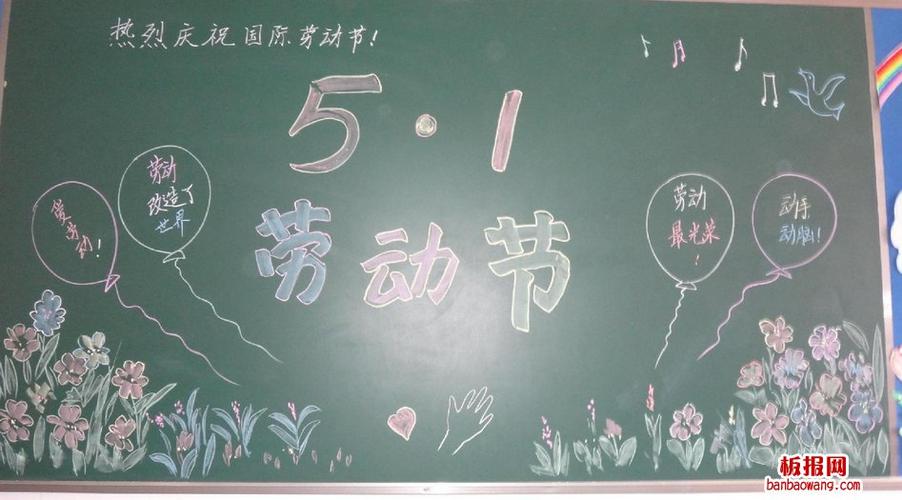 热烈庆祝国际劳动节!
5·1
劳动节
爱劳动!
劳动
改造了
世界
劳动
最光荣
!
动手
动脑!
板报网
banbaowang.com